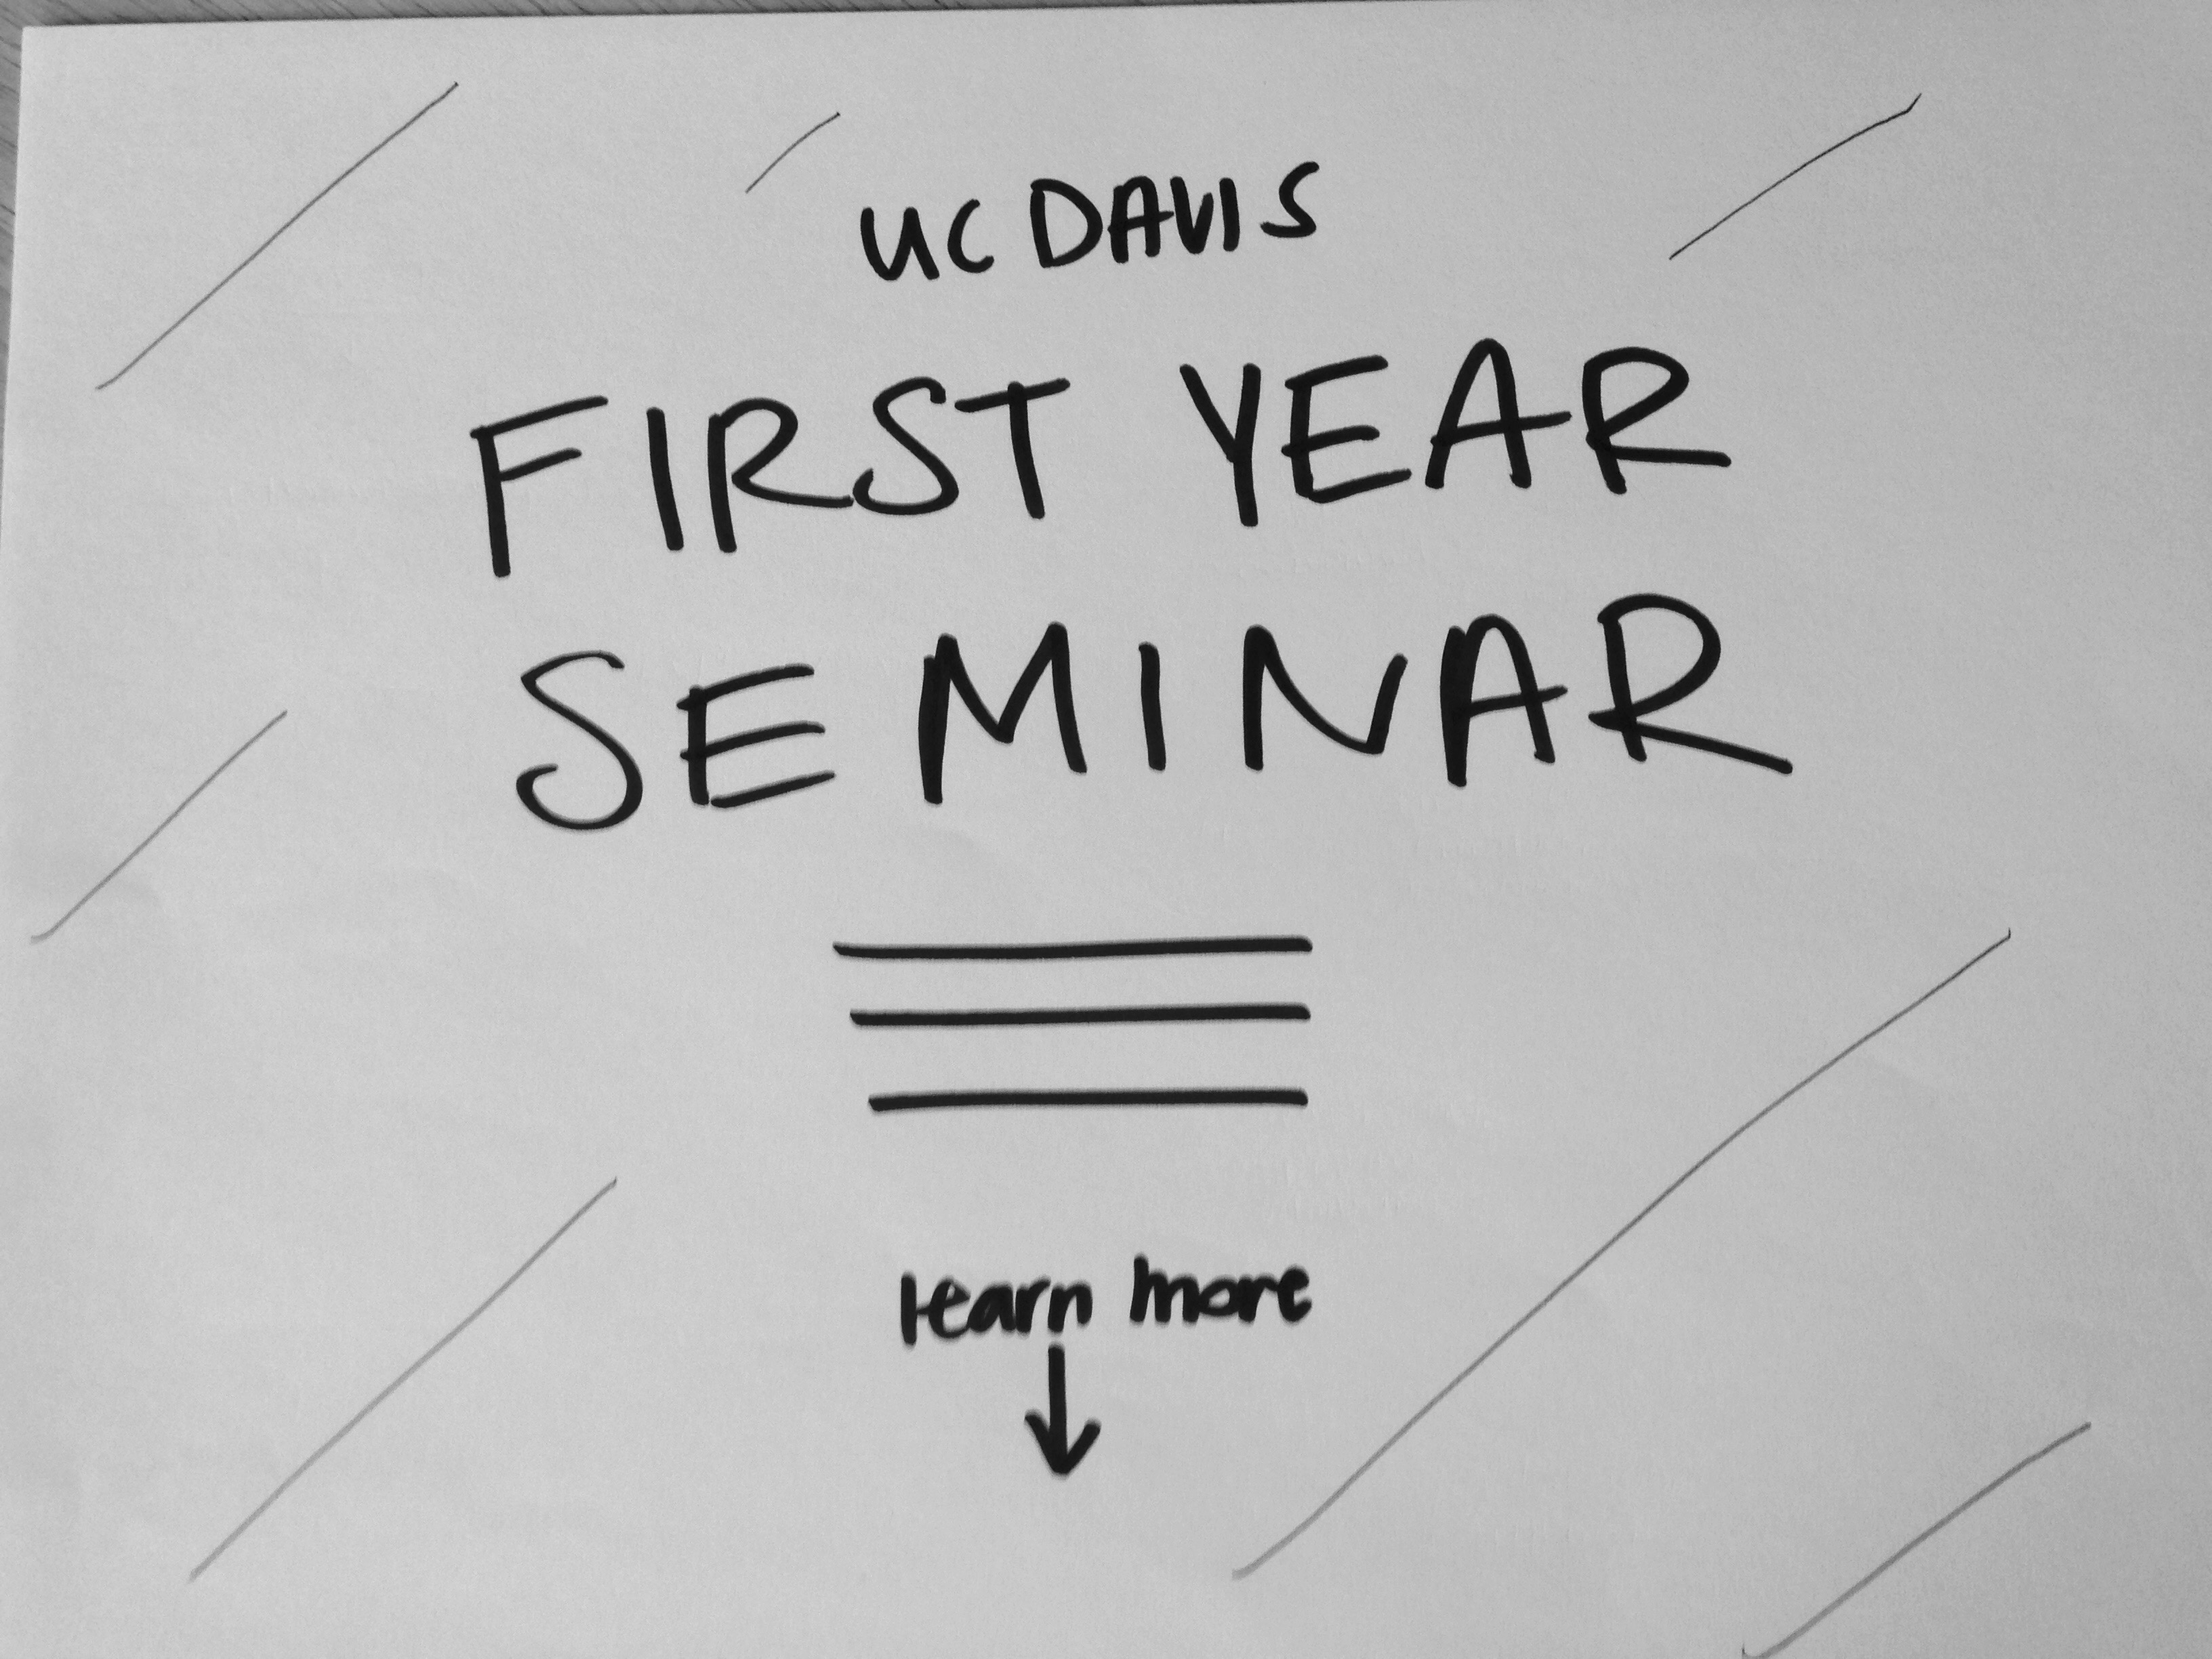 UC DAVIS
FIRST YEAR
SEMINAR
learn more